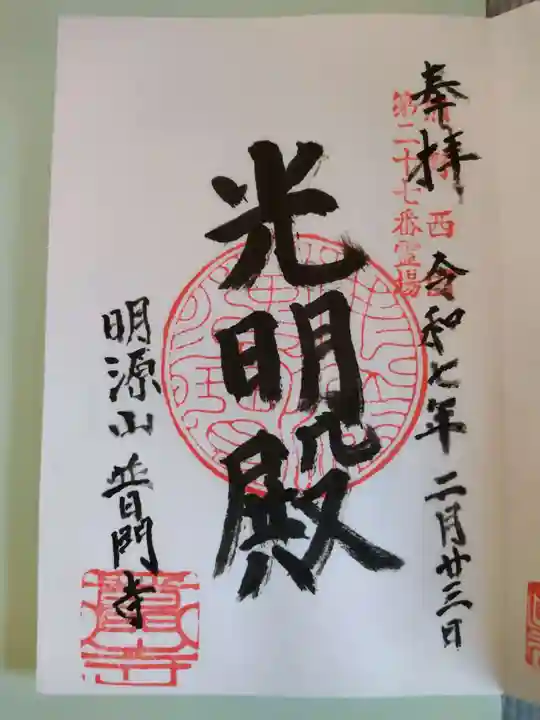 奉拝
第二十七番霊場
西
令和七年二月廿三日
光明殿
明源山普門寺